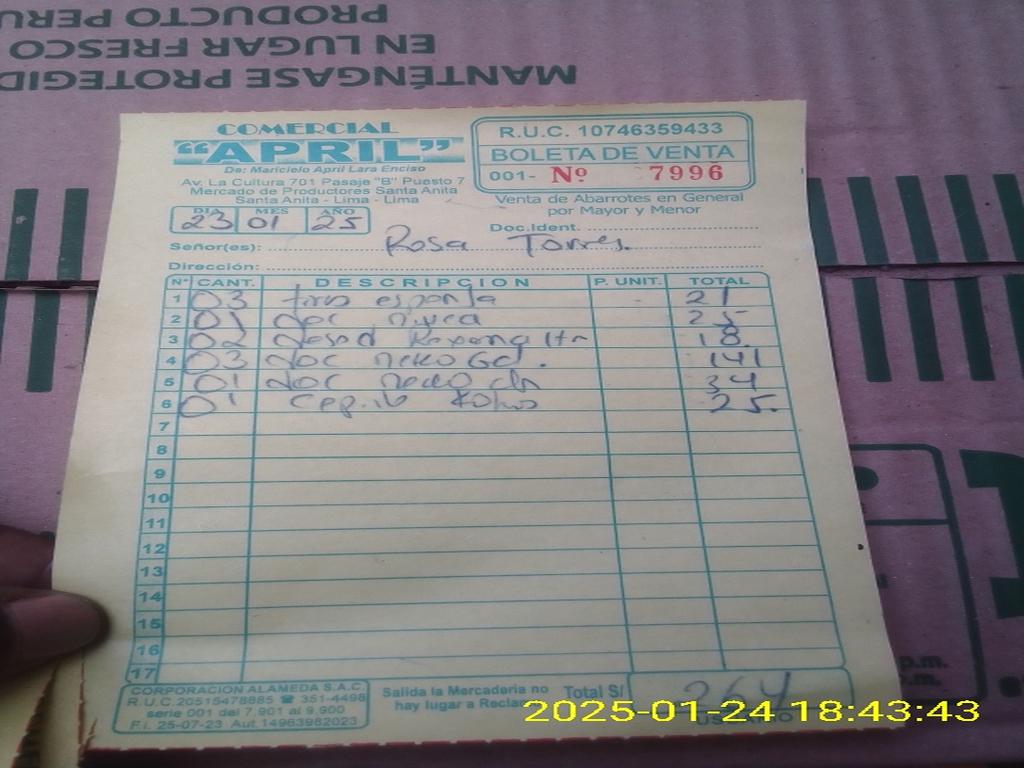 PRODUCTO PERU
EN LUGAR FRESCO
MANTÉNGASE PROTEGID
COMERCIAL
"APRIL"
De: Maricielo April Lara Enciso
Av. La Cultura 701 Pasaje "B" Puesto 7
Mercado de Productores Santa Anita
Santa Anita - Lima - Lima
R.U.C. 10746359433
BOLETA DE VENTA
001- Nº 7996
Venta de Abarrotes en General
por Mayor y Menor
DIA MES AÑO
23 01 25
Doc.Ident.
Señor(es): Rosa Torres.
Dirección:
Nº CANT. DESCRIPCION P. UNIT. TOTAL
1 03 esponja 21
2 01 doc 25
3 02 18
4 03 doc 141
5 01 doc 34
6 01 25.
7
8
9
10
11
12
13
14
15
16
17
CORPORACION ALAMEDA S.A.C.
R.U.C. 20515478885 ☎ 351-4498
serie 001 del 7,901 al 9,900
F.i. 25-07-23 Aut. 14963982023
Salida la Mercadería no
hay lugar a Recla
Total S/ 264
USUARIO
p.m.
p.m.
2025-01-24 18:43:43